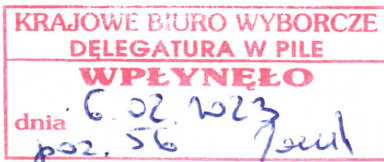 KRAJOWE BIURO WYBORCZE
DELEGATURA W PILE
WPŁYNĘŁO
dnia 6.02.2023
poz. 56